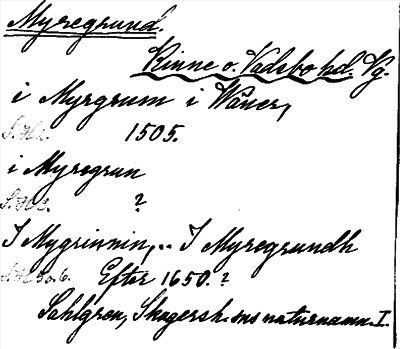 Myregrund.
Kinne o. Vadsbo hd. Vg.
i Myrgrum i Wäner,
1505.
i Myregrun
?
I Mygrinnin, .. I Myregrundh
Efter 1650. ?
Sahlgren, Skagersh. sns naturnamn. I.